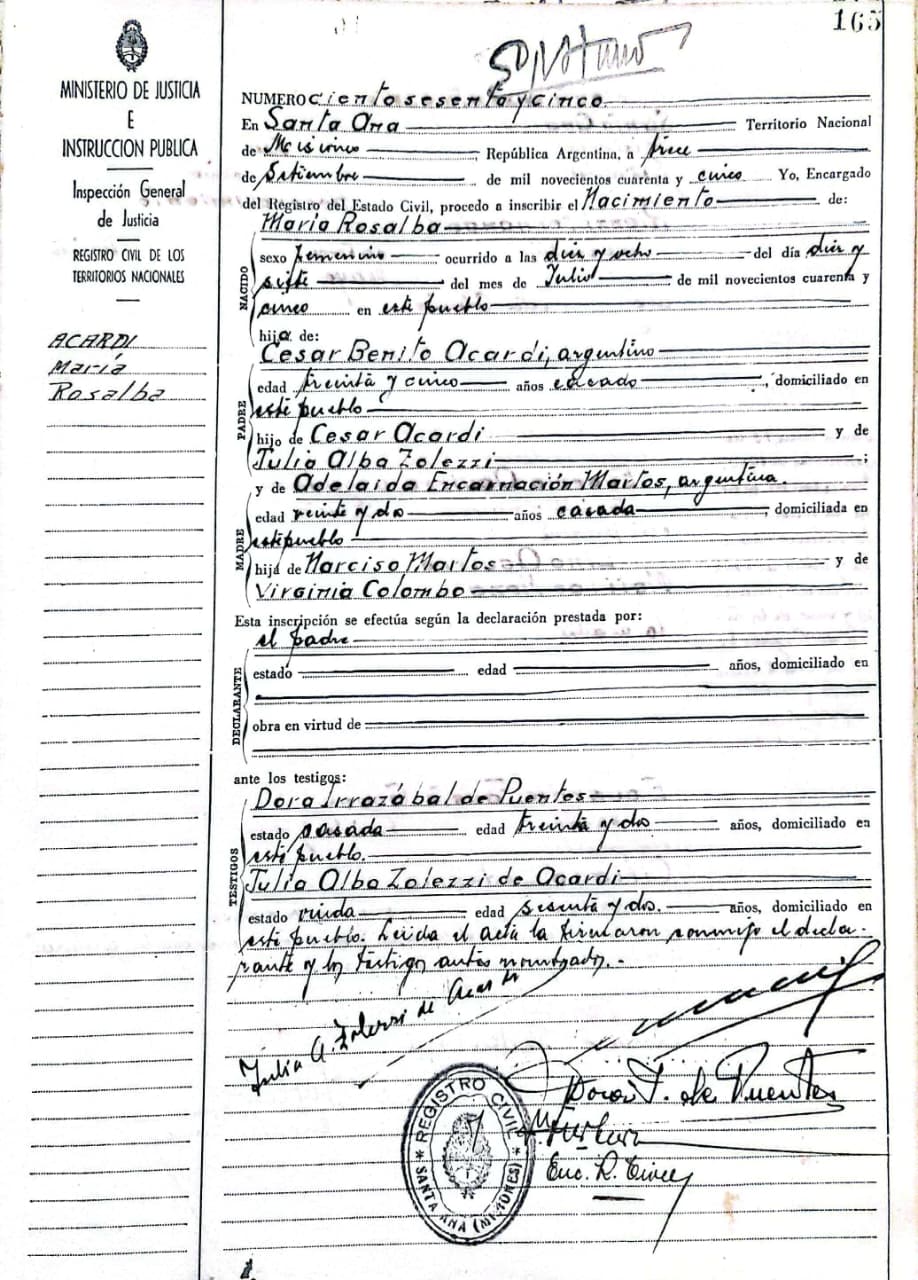 165
MINISTERIO DE JUSTICIA
E
INSTRUCCION PUBLICA
Inspección General
de Justicia
REGISTRO CIVIL DE LOS
TERRITORIOS NACIONALES
ACARDI
María
Rosalba
NUMERO ciento sesenta y cinco
En Santa Ana Territorio Nacional
de Misiones, República Argentina, a trece
de Setiembre de mil novecientos cuarenta y cinco Yo, Encargado
del Registro del Estado Civil, procedo a inscribir el Nacimiento de:
María Rosalba
NACIDO
sexo femenino ocurrido a las diez y ocho del día diez y
siete del mes de Julio de mil novecientos cuarenta y
cinco en este pueblo
hija de:
Cesar Benito Acardi, argentino
PADRE
edad treinta y cinco años casado, domiciliado en
este pueblo
hijo de Cesar Acardi y de
Julia Alba Zolezzi;
y de Adelaida Encarnación Martos, argentina.
MADRE
edad veinte y dos años casada, domiciliada en
este pueblo
hija de Narciso Martos y de
Virginia Colombo
Esta inscripción se efectúa según la declaración prestada por:
el padre
DECLARANTE
estado edad años, domiciliado en
obra en virtud de
ante los testigos:
TESTIGOS
Dora Irrazábal de Puentes
estado casada edad treinta y dos años, domiciliado en
este pueblo.
Julia Alba Zolezzi de Acardi
estado viuda edad sesenta y dos. años, domiciliado en
este pueblo. Leida el acta la firmaron conmigo el decla-
rante y los testigos antes nombrados.-
Julia A. Zolezzi de Acardi
Dora I. de Puentes
Enc. R. Civil
REGISTRO CIVIL
SANTA ANA (MISIONES)